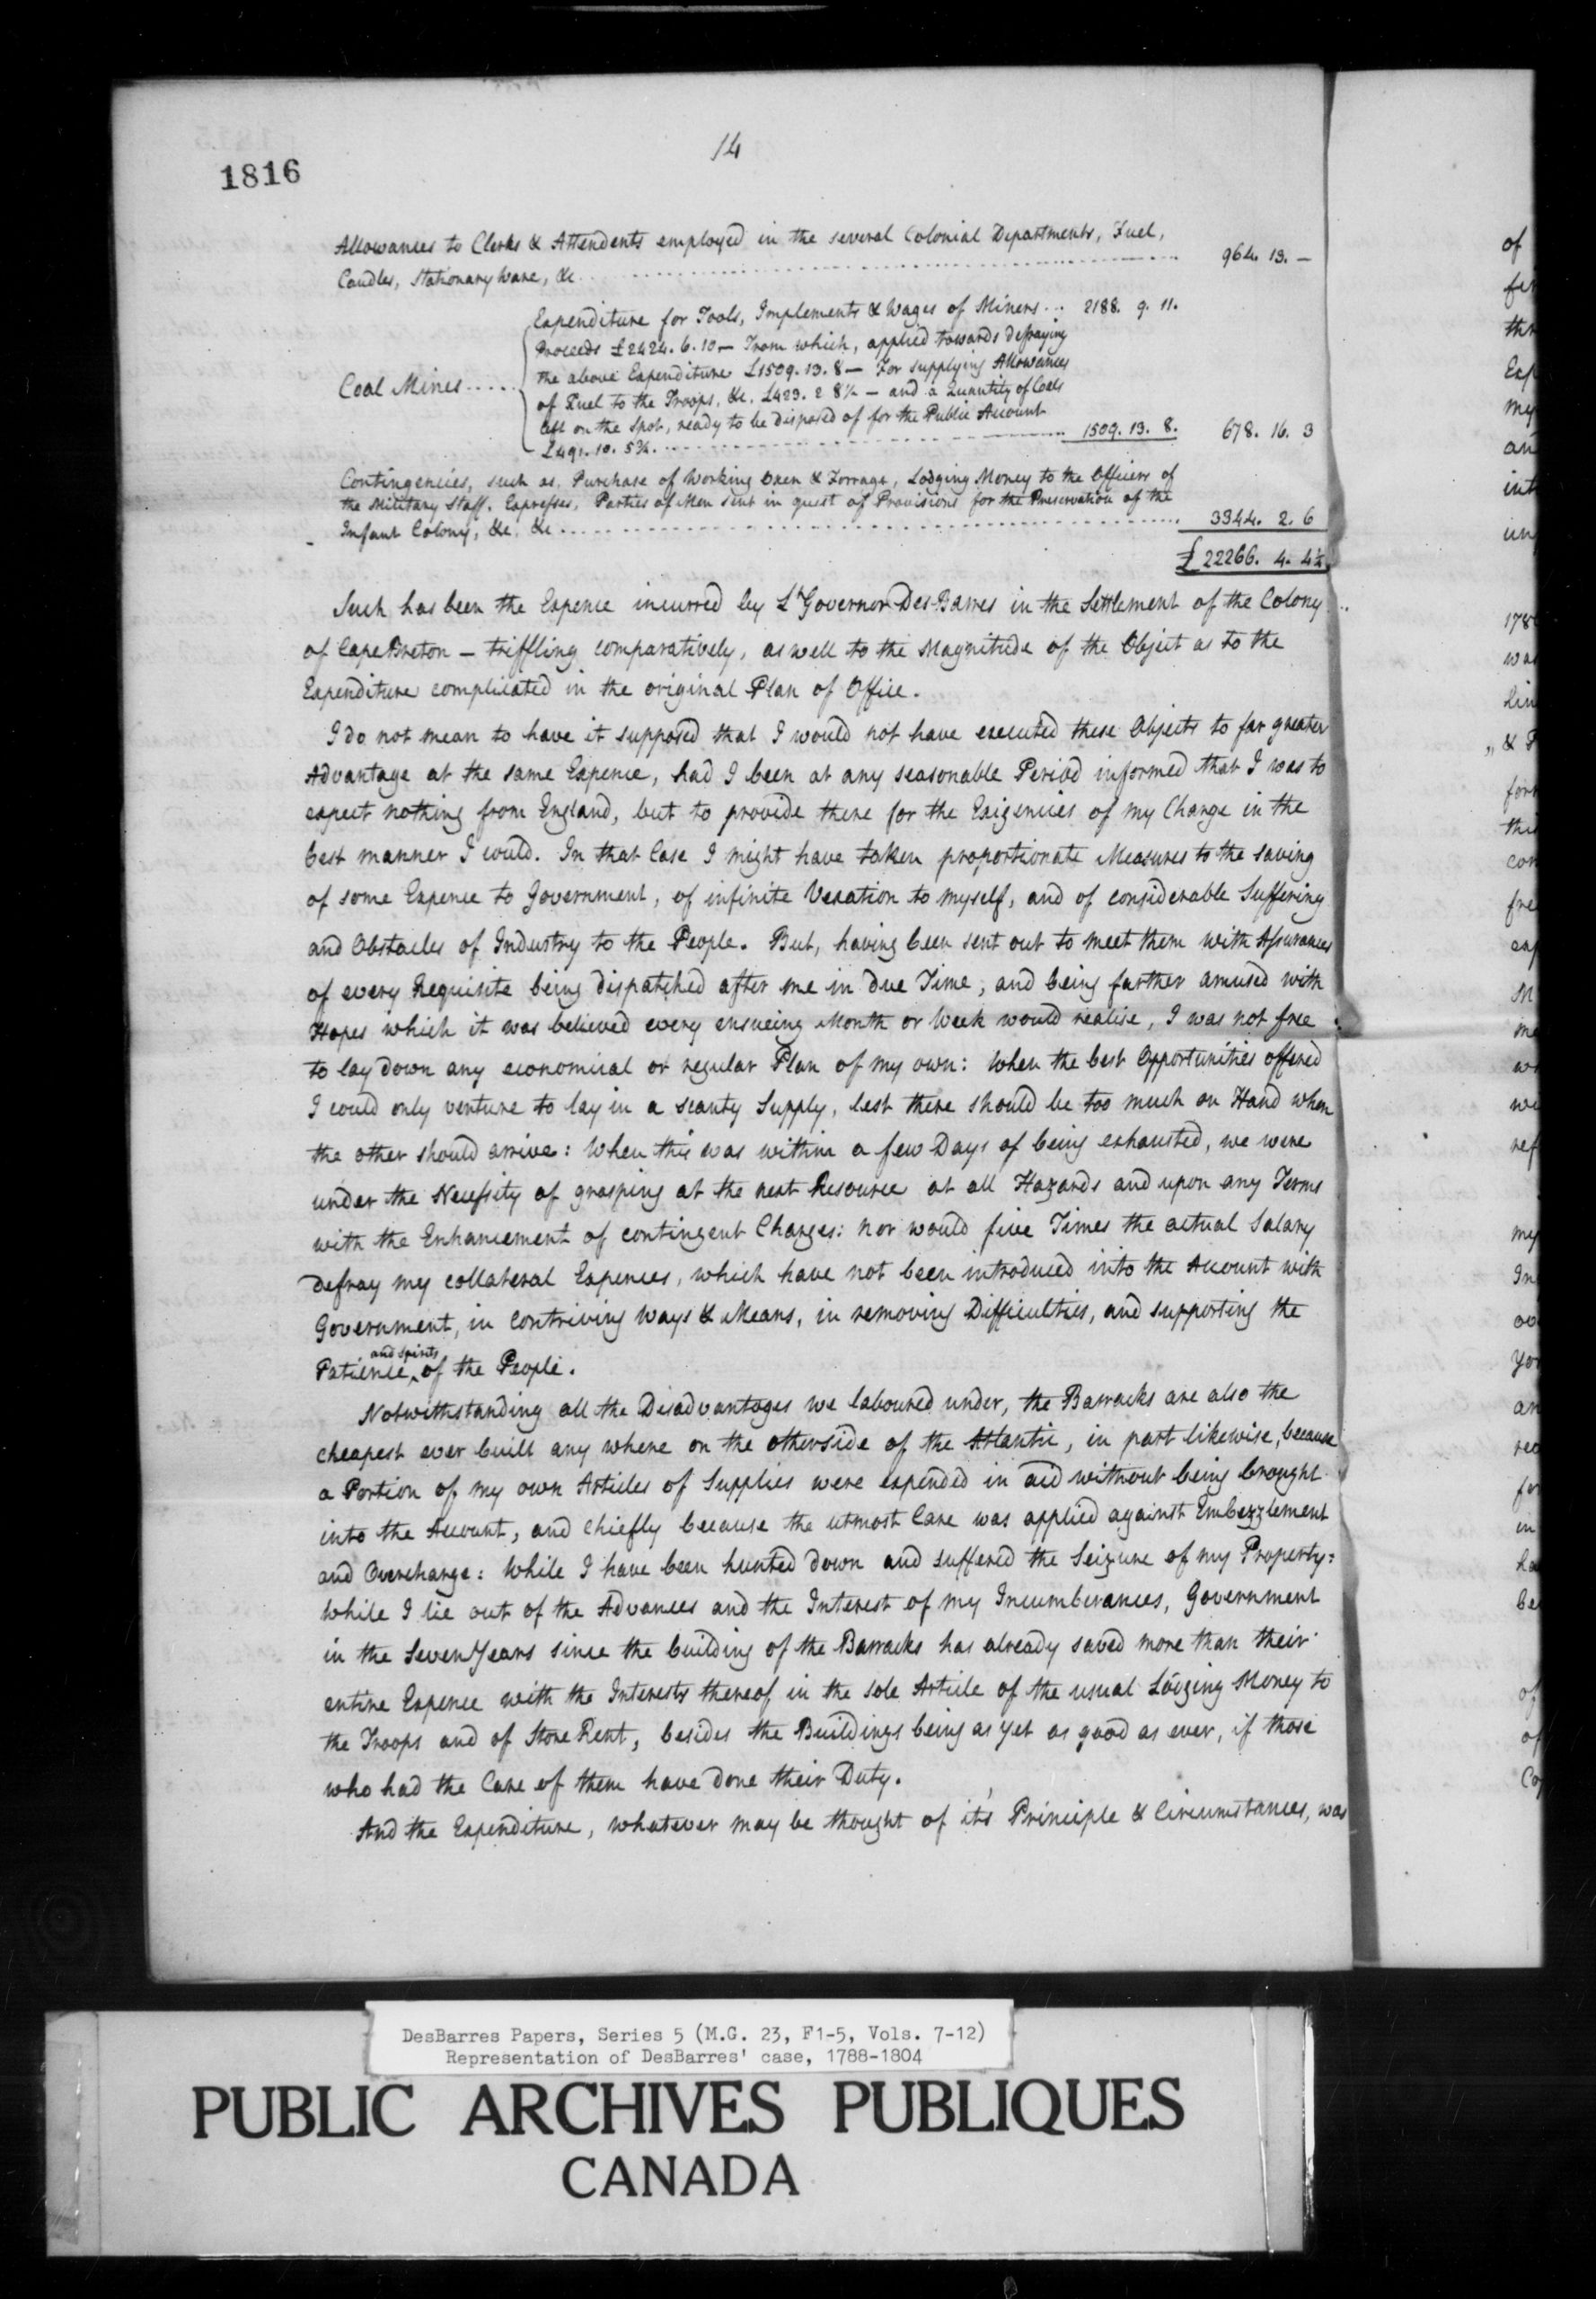 14
1816
Allowances to Clerks & Attendents employed in the several Colonial Departments, Fuel,
Candles, Stationary Ware, &c ........ 964. 13. —
Expenditure for Tools, Implements & Wages of Miners ... 2188. 9. 11.
Proceeds £2424. 6. 10 — From which, applied towards defraying
the above Expenditure £1509. 13. 8 — For supplying Allowances
Coal Mines ..... of Fuel to the Troops, &c. £423. 2 8½ — and a Quantity of Coals
left on the Spot, ready to be disposed of for the Public Account
£491. 10. 5¾ ........ 1509. 13. 8. 678. 16. 3
Contingencies, such as, Purchase of Working Oxen & Forrage, Lodging Money to the Officers of
the Military Staff. Expresses, Parties of Men sent in quest of Provisions for the Preservation of the
Infant Colony, &c. &c ........ 3344. 2. 6
£22266. 4. 4¼
Such has been the Expence incurred by Lt Governor DesBarres in the Settlement of the Colony
of Cape Breton — triffling comparatively, as well to the Magnitude of the Object as to the
Expenditure complicated in the original Plan of Office.
I do not mean to have it supposed that I would not have executed these Objects to far greater
Advantage at the same Expence, had I been at any seasonable Period informed that I was to
expect nothing from England, but to provide there for the Exigencies of my Charge in the
best manner I could. In that Case I might have taken proportionate Measures to the saving
of some Expence to Government, of infinite Vexation to myself, and of considerable Suffering
and Obstacles of Industry to the People. But, having been sent out to meet them with Assurances
of every Requisite being dispatched after me in due Time, and being farther amused with
Hopes which it was believed every ensueing Month or Week would realise, I was not free
to lay down any economical or regular Plan of my own: When the best Opportunities offered
I could only venture to lay in a scanty Supply, lest there should be too much on Hand when
the other should arrive: When this was within a few Days of being exhausted, we were
under the Necessity of grasping at the next Resource at all Hazards and upon any Terms
with the Enhancement of contingent Charges: nor would five Times the actual Salary
defray my collateral Expences, which have not been introduced into the Account with
Government, in contriving Ways & Means, in removing Difficulties, and supporting the
Patience and spirits of the People.
Notwithstanding all the Disadvantages we laboured under, the Barracks are also the
cheapest ever built any where on the otherside of the Atlantic, in part likewise, because
a Portion of my own Articles of Supplies were expended in aid without being brought
into the Account, and chiefly because the utmost Care was applied against Embezzlement
and Overcharge: While I have been hunted down and suffered the Seizure of my Property:
While I lie out of the Advances and the Interest of my Incumberances, Government
in the Seven Years since the building of the Barracks has already saved more than their
entire Expence with the Interests thereof in the sole Article of the usual Lodging Money to
the Troops and of Store Rent, besides the Buildings being as yet as good as ever, if those
who had the Care of them have done their Duty.
And the Expenditure, whatever may be thought of it's Principle & Circumstances, was
DesBarres Papers, Series 5 (M.G. 23, F1-5, Vols. 7-12)
Representation of DesBarres' case, 1788-1804
PUBLIC ARCHIVES PUBLIQUES
CANADA